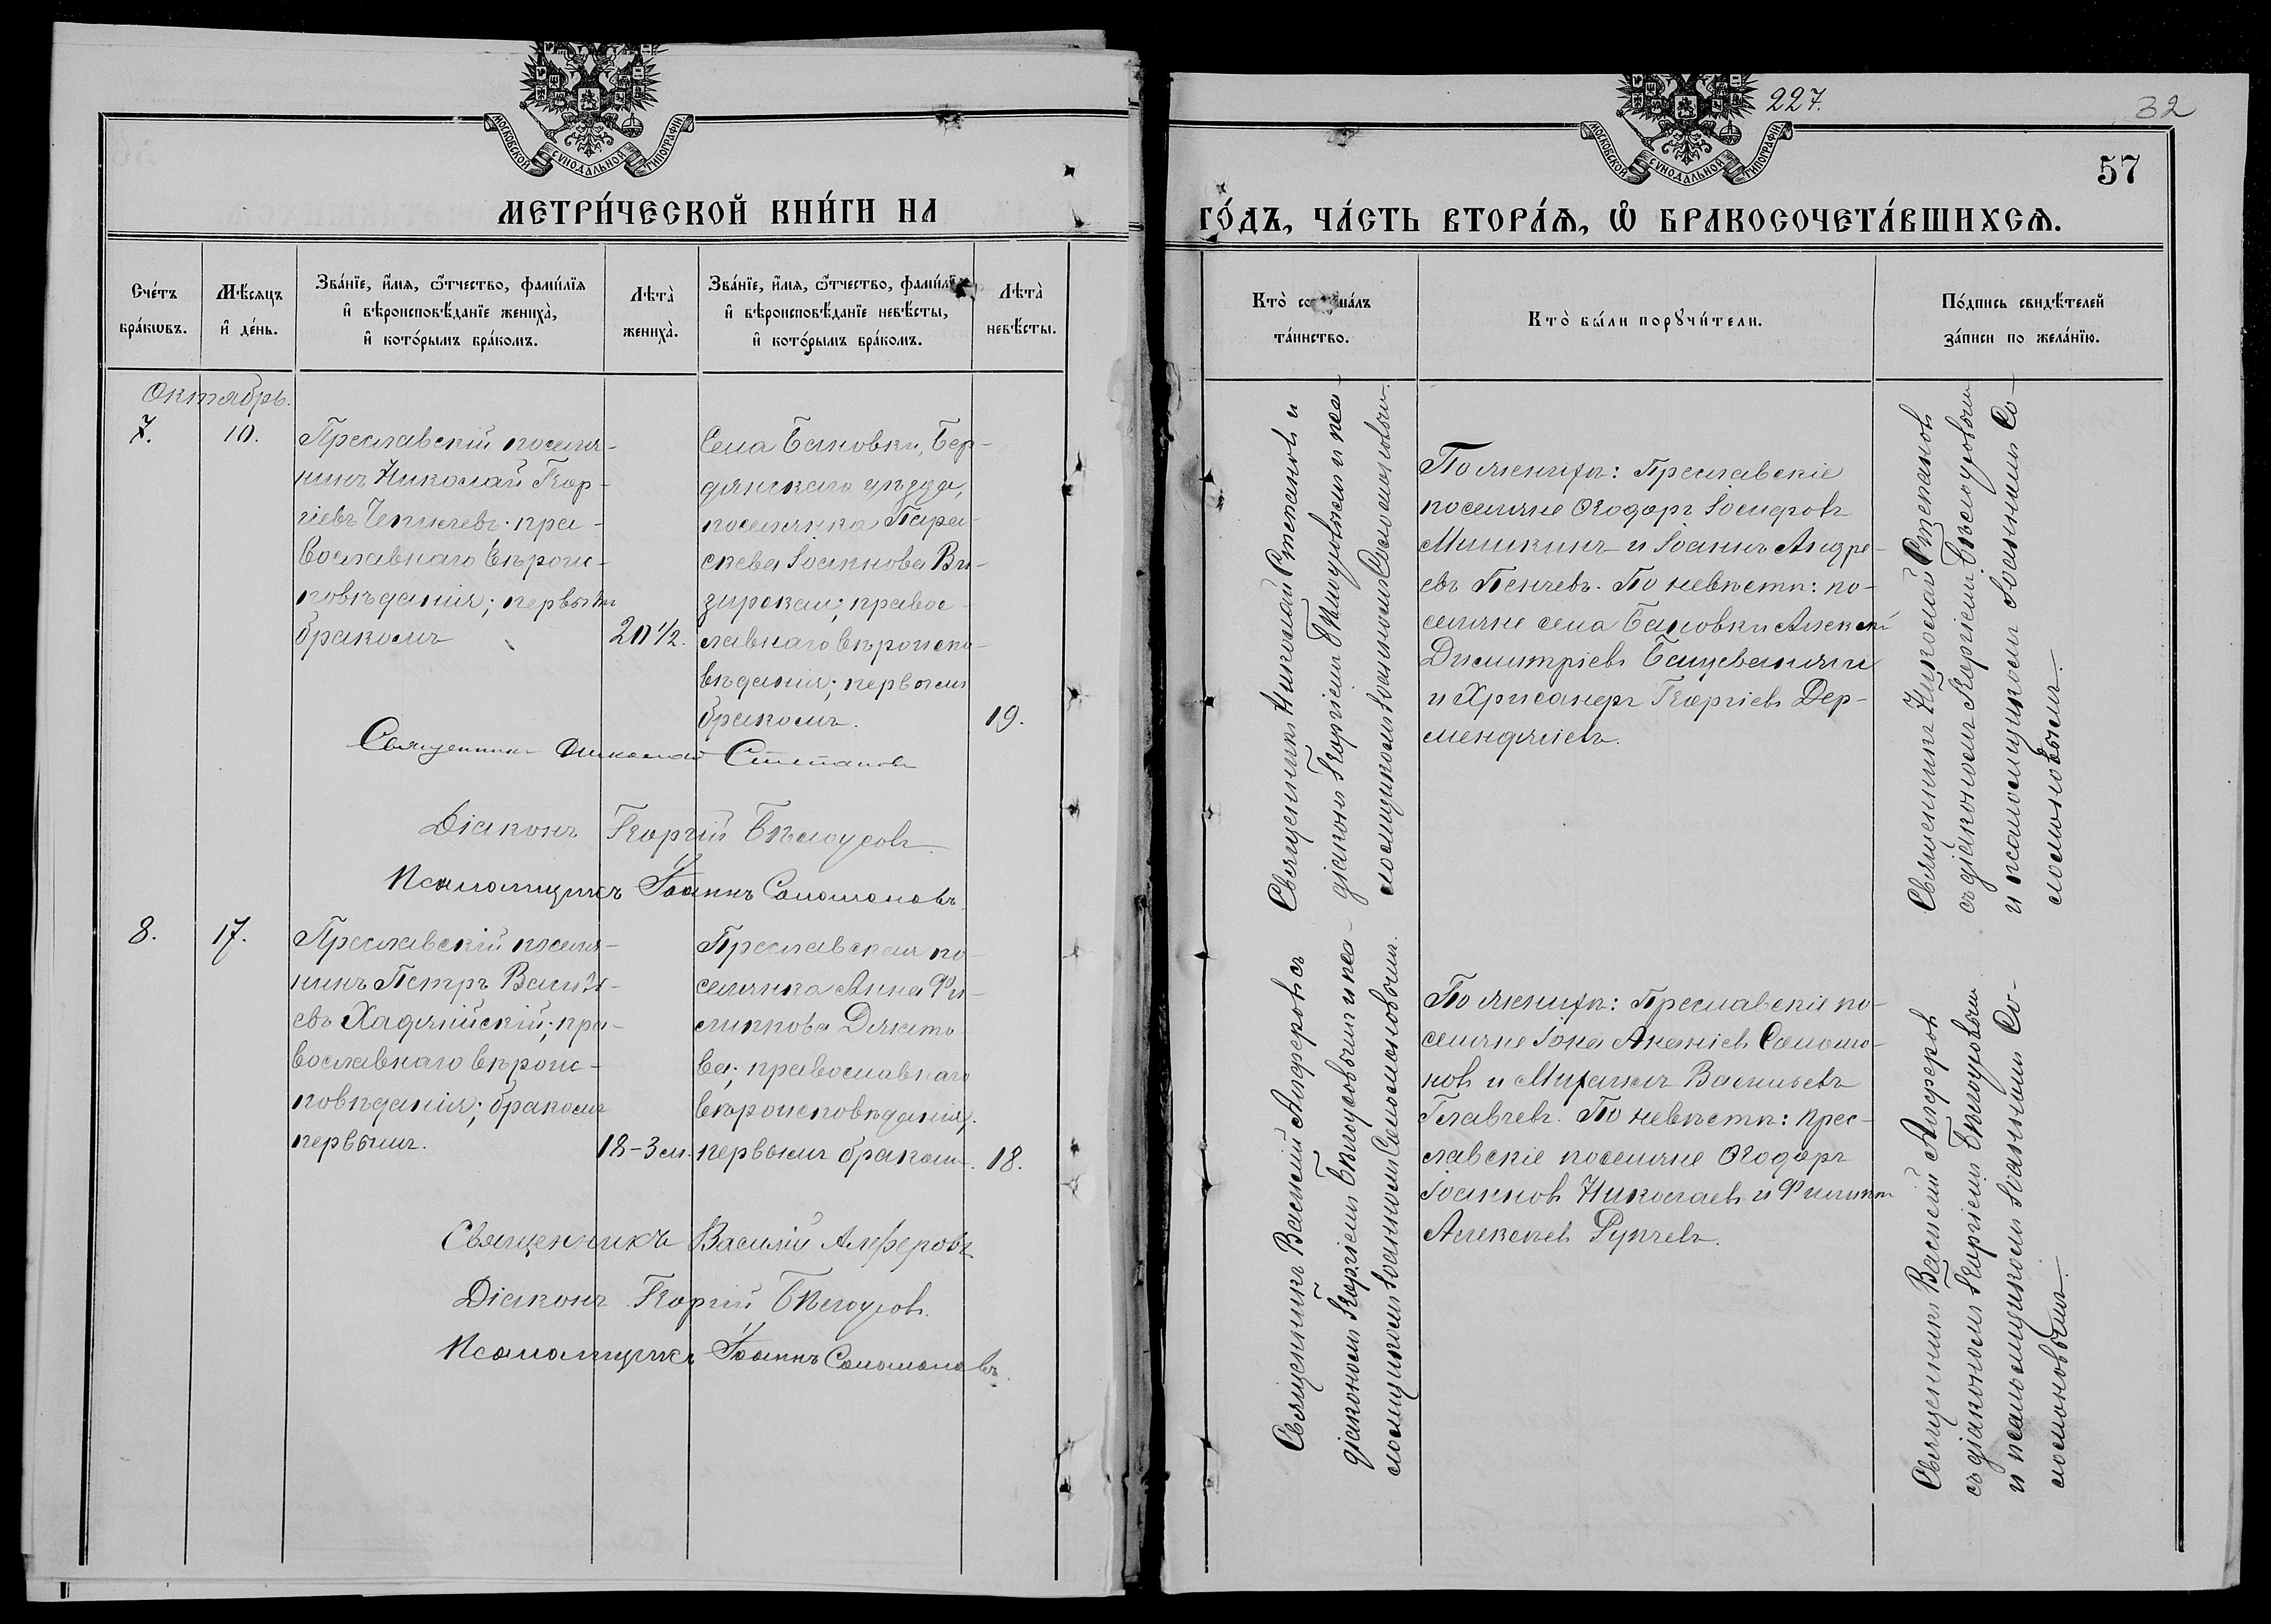 МОСКОВСКОЙ СѴНОДАЛЬНОЙ ТИПОГРАФІИ
МЕТРИ́ЧЕСКОЙ КНИ́ГИ НА
Сче́тъ
бра́кѡвъ.
Мѣ́сяцъ
и҆ де́нь.
Зва́нїе, и҆́мѧ, ѻ҆́тчество, фами́лїѧ
и҆ вѣроисповѣ́данїе жениха̀,
и҆ кото́рымъ бра́комъ.
Лѣта̀
жениха̀.
Зва́нїе, и҆́мѧ, ѻ҆́тчество, фами́лїѧ
и҆ вѣроисповѣ́данїе невѣ́сты,
и҆ кото́рымъ бра́комъ.
Лѣта̀
невѣ́сты.
Октябрь.
7.
10.
Преславскій поселя-
нинъ Николай Геор-
гіевъ Чепичевъ; пра-
вославнаго вѣроис-
повѣданія; первымъ
бракомъ
20 1/2.
Села Бановки, Бер-
дянскаго уѣзда,
поселянка Пара-
скева Іоаннова Ви-
зирская; правос-
лавнаго вѣроиспо-
вѣданія; первымъ
бракомъ.
19.
Священникъ Николай Степановъ
Діаконъ Георгій Бѣлоусовъ.
Псаломщикъ Іоаннъ Соломоновъ.
8.
17.
Преславскій поселя-
нинъ Петръ Василі-
евъ Хаджійскій; пра-
вославнаго вѣроис-
повѣданія; бракомъ
первымъ.
18-3 м.
Преславская по-
селянка Анна Фи-
липпова Дякато-
ва; православнаго
вѣроисповѣданія;
первымъ бракомъ.
18.
Священникъ Василій Алферовъ
Діаконъ Георгій Бѣлоусовъ.
Псаломщикъ Іоаннъ Соломоновъ.
227.
32
57
МОСКОВСКОЙ СѴНОДАЛЬНОЙ ТИПОГРАФІИ
ГО́ДЪ, ЧА́СТЬ ВТОРА́Ѧ, Ѽ БРАКОСОЧЕТА́ВШИХСѦ.
Кто̀ соверша́лъ
та́инство.
Кто̀ бы́ли порꙋчи́тели.
По́дпись свидѣ́телей
за́писи по жела́нїю.
Священникъ Николай Степановъ и
діаконъ Георгіемъ Бѣлоусовымъ и пса-
ломщикомъ Іоанномъ Соломоновымъ.
По женихѣ: Преславскіе
поселяне Ѳеодоръ Іосифовъ
Мишкинъ и Іоаннъ Андре-
евъ Пенчевъ. По невѣстѣ: по-
селяне села Бановки Алексѣй
Димитріевъ
и Хрисанфъ Георгіевъ Дер-
менджіевъ.
Священникъ Николай Степановъ
съ діакономъ Георгіемъ Бѣлоусовымъ
и псаломщикомъ Іоанномъ Со-
ломоновымъ.
Священникъ Василій Алферовъ съ
діакономъ Георгіемъ Бѣлоусовымъ и пса-
ломщикомъ Іоанномъ Соломоновымъ.
По женихѣ: Преславскіе по-
селяне Іона Ананіевъ Соломо-
новъ и Михаилъ Васильевъ
Главчевъ. По невѣстѣ: прес-
лавскіе поселяне Ѳеодоръ
Іоанновъ Николаевъ и Филиппъ
Алексѣевъ Рупчевъ.
Священникъ Василій Алферовъ
съ діакономъ Георгіемъ Бѣлоусовымъ
и псаломщикомъ Іоанномъ Со-
ломоновымъ.